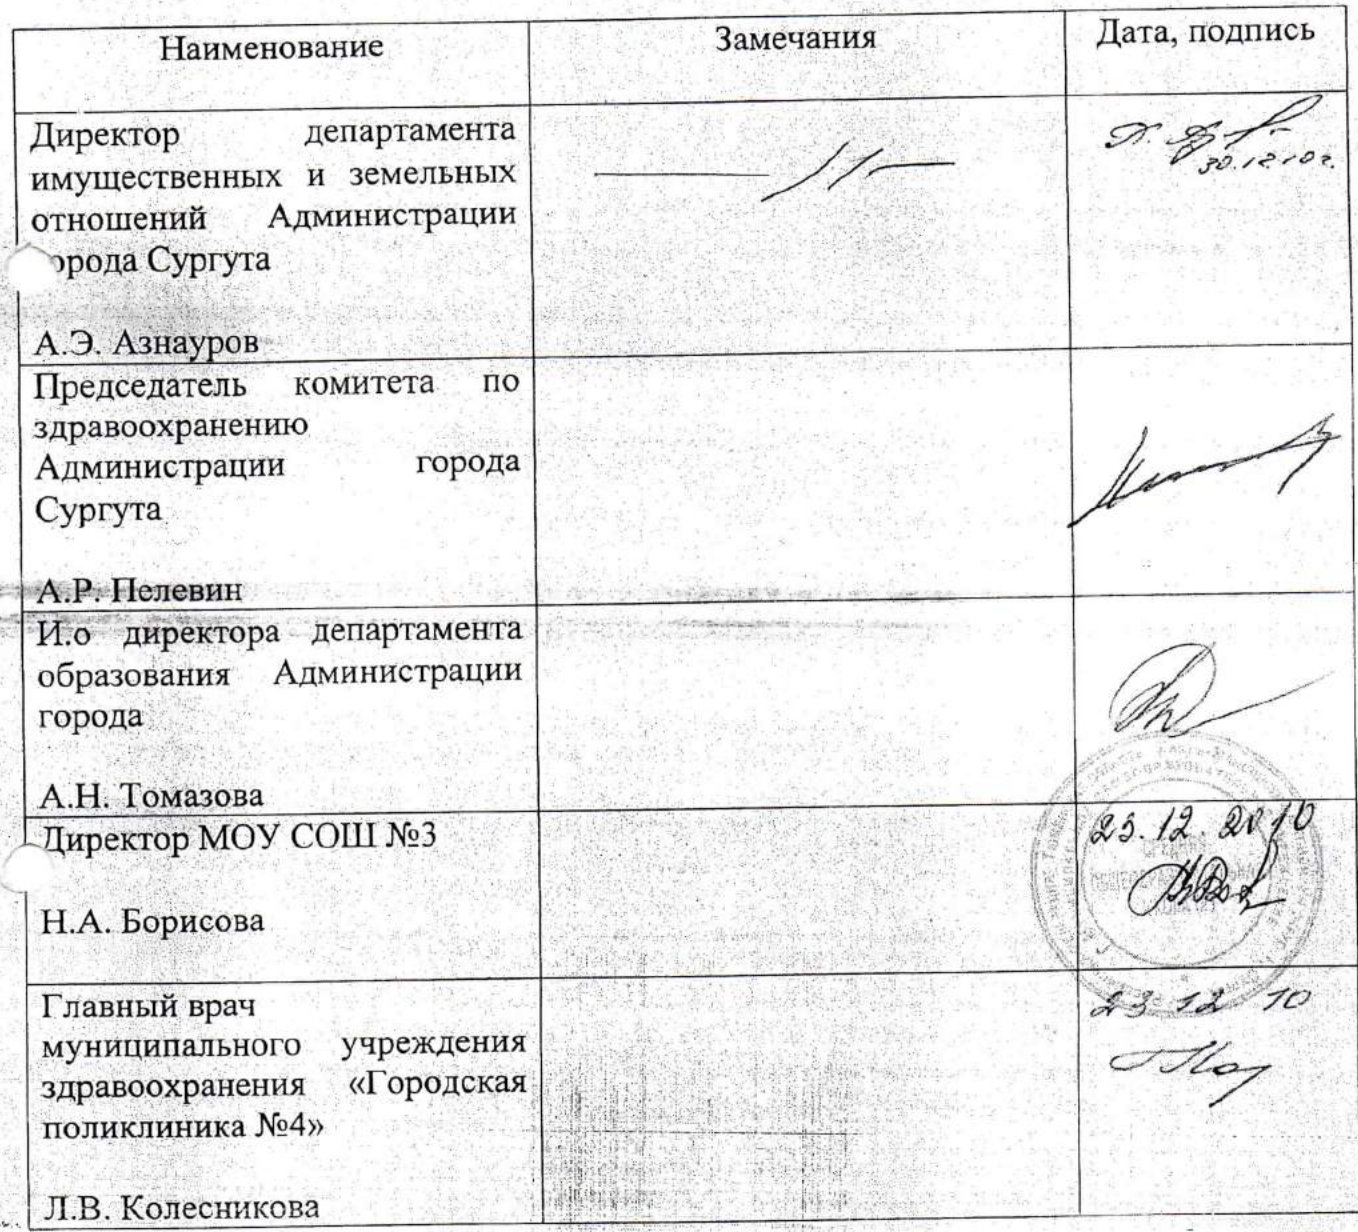 Наименование
Замечания
Дата, подпись
Директор департамента
имущественных и земельных
отношений Администрации
орода Сургута
А.Э. Азнауров
30.12.10г.
Председатель комитета по
здравоохранению
Администрации города
Сургута
А.Р. Пелевин
И.о директора департамента
образования Администрации
города
А.Н. Томазова
Директор МОУ СОШ №3
Н.А. Борисова
23.12.2010
Главный врач
муниципального учреждения
здравоохранения «Городская
поликлиника №4»
Л.В. Колесникова
23 12 10